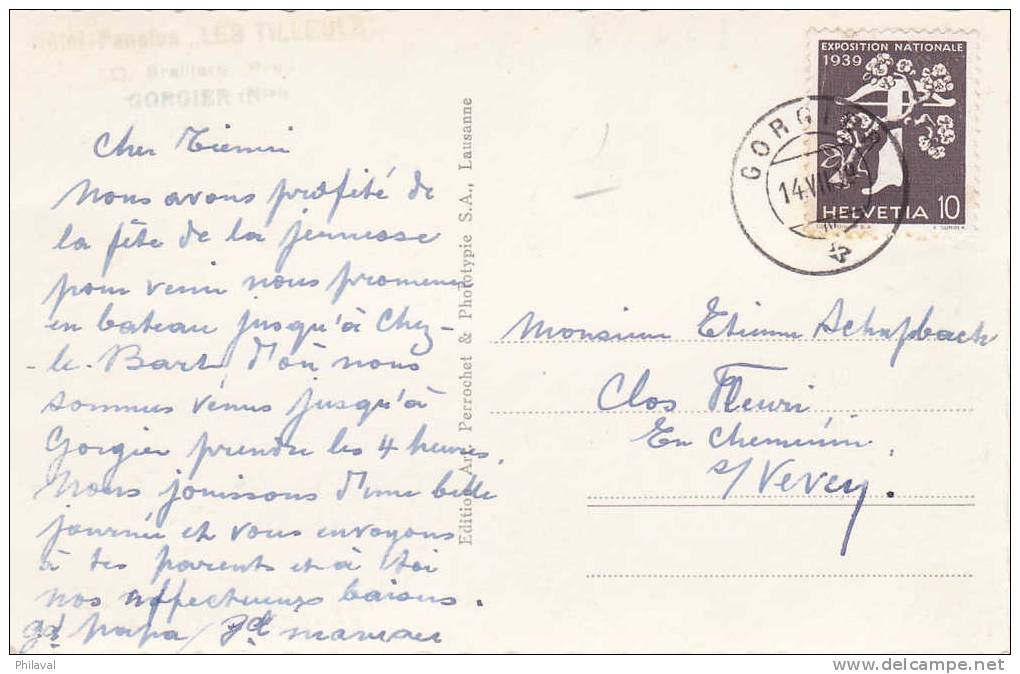 Pension "LES TILLEULS"
GORGIER
Cher
Nous avons profité de
la fête de la jeunesse
pour venir nous promener
en bateau jusqu'à Chez-
-le-Bart, d'où nous
sommes venus jusqu'à
Gorgier prendre les 4 heures.
Nous jouissons d'une belle
journée et vous envoyons
à tes parents et à toi
nos affectueux baisers.
gd papa / gd maman
Edition Art. Perrochet & Phototypie S.A., Lausanne
EXPOSITION NATIONALE
1939
HELVETIA 10
GORGIER
14.VII.39
Monsieur Etienne Schafsbach
Clos Fleuri
En
s/Vevey.
Philaval
delcampe.net